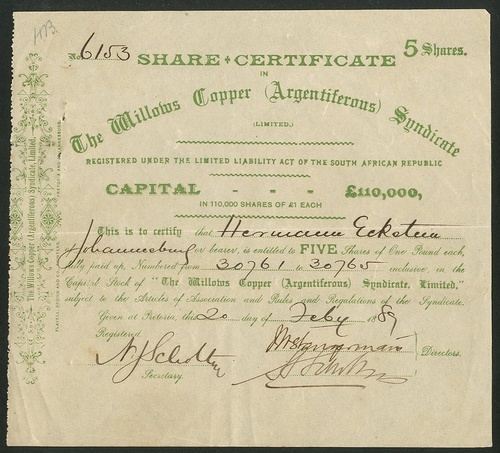 No. 6153
SHARE + CERTIFICATE
5 Shares.
IN
The Willows Copper (Argentiferous) Syndicate
(LIMITED.)
REGISTERED UNDER THE LIMITED LIABILITY ACT OF THE SOUTH AFRICAN REPUBLIC
CAPITAL - - - £110,000,
IN 110,000 SHARES OF £1 EACH
This is to certify that Hermann Eckstein
Johannesburg or bearer, is entitled to FIVE Shares of One Pound each,
fully paid up, Numbered from 30761 to 30765 inclusive, in the
Capital Stock of "The Willows Copper (Argentiferous) Syndicate, Limited,"
subject to the Articles of Association and Rules and Regulations of the Syndicate.
Given at Pretoria, this 20 day of Feby 1889
Registered
Directors.
Secretary.
The Willows Copper (Argentiferous) Syndicate, Limited.